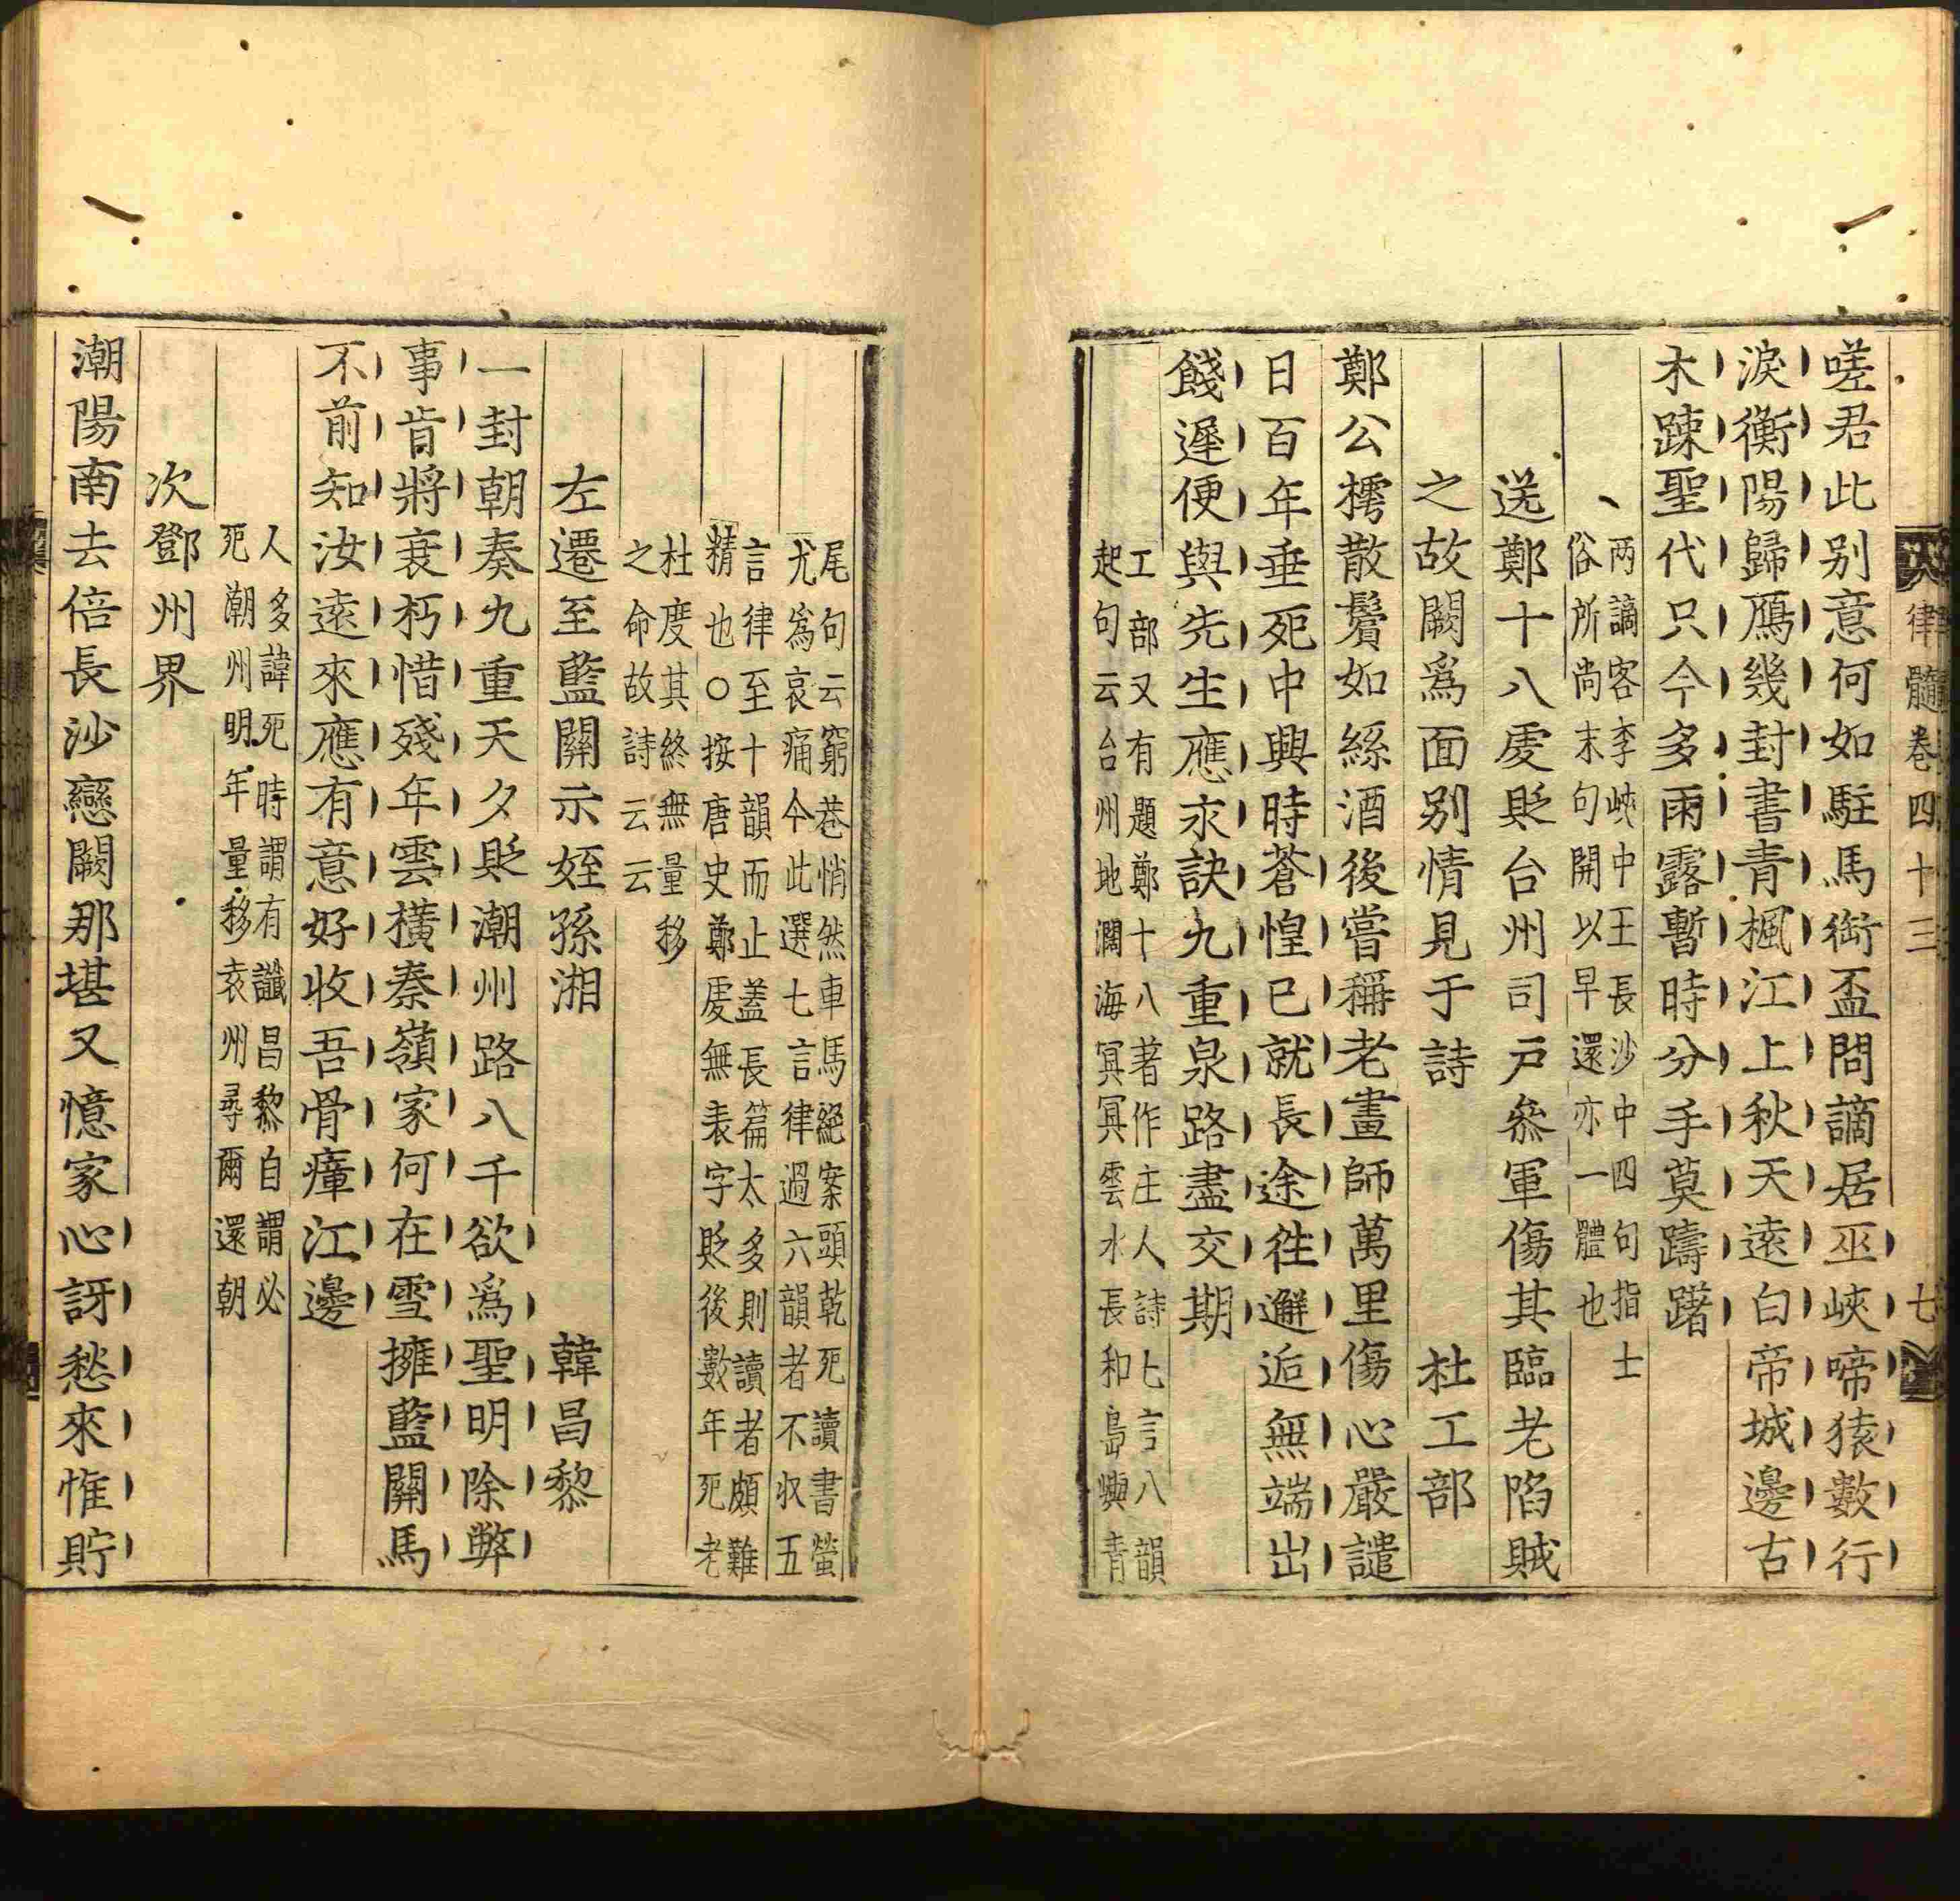 律髓卷四十三
七
嗟君此别意何如駐馬銜盃問謫居巫峽啼猿數行
淚衡陽歸鴈幾封書青楓江上秋天遠白帝城邊古
木踈聖代只今多雨露暫時分手莫躊躇
两謫客李峽中王長沙中四句指士
俗所尚末句開以早還亦一體也
送鄭十八虔貶台州司戸叅軍傷其臨老陷賊
之故闕爲面别情見于詩 杜工部
鄭公樗散鬢如絲酒後嘗稱老畫師萬里傷心嚴譴
日百年垂死中興時蒼惶已就長途徃邂逅無端出
餞遲便與先生應永訣九重泉路盡交期
工部又有題鄭十八著作主人詩七言八韻
起句云台州地濶海冥冥雲水長和島嶼青
尾句云窮巷悄然車馬絕案頭乾死讀書螢
尤爲哀痛今此選七言律過六韻者不収五
言律至十韻而止葢長篇太多則讀者頗難
精也○按唐史鄭虔無表字貶後數年死老
杜度其終無量移
之命故詩云云
左遷至藍關示姪孫湘 韓昌黎
一封朝奏九重天夕貶潮州路八千欲爲聖明除弊
事肯將衰朽惜殘年雲橫秦嶺家何在雪擁藍關馬
不前知汝遠來應有意好收吾骨瘴江邊
人多諱死時謂有讖昌黎自謂必
死潮州明年量移袁州尋爾還朝
次鄧州界
潮陽南去倍長沙戀闕那堪又憶家心訝愁來惟貯